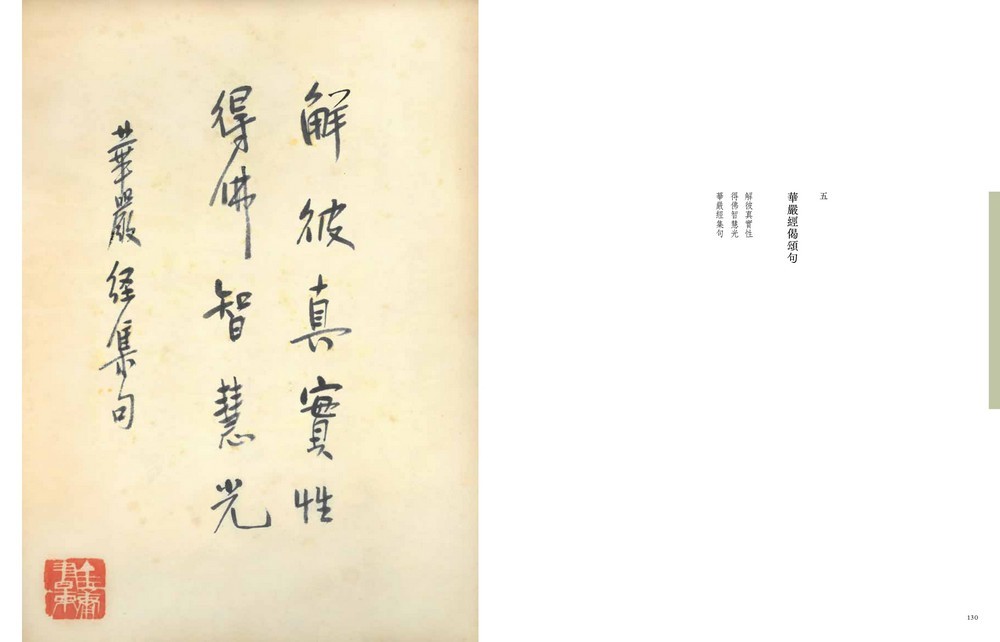 五
華嚴經偈頌句
解彼真實性
得佛智慧光
華嚴經集句
130
解彼真實性
得佛智慧光
華嚴経集句